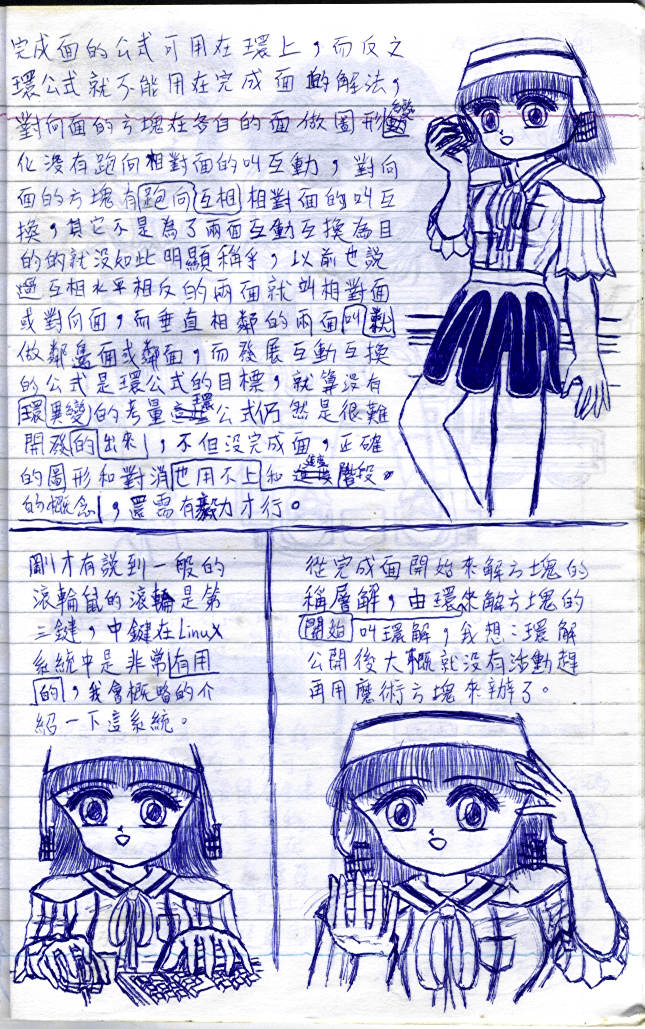 完成面的公式可用在環上，而反之
環公式就不能用在完成面的解法，
對向面的方塊在多自的面做圖形變動
化沒有跑向相對面的叫互動，對向
面的方塊有跑向互相相對面的叫互
換，其它不是為了兩面互動互換為目
的的就沒如此明顯稱乎，以前也說
過互相水平相反的兩面就叫相對面
或對向面，而垂直相鄰的兩面叫
做鄰邊面或鄰面，而發展互動互換
的公式是環公式的目標，就算沒有
環異變的考量環公式仍然是很難
開發的出來，不但沒完成面，正確
的圖形和對消也用不上和連接階段
的概念，還需有毅力才行。
剛才有說到一般的
滾輪鼠的滾輪是第
三鍵，中鍵在Linux
系統中是非常有用
的，我會概略的介
紹一下這系統。
從完成面開始來解方塊的
稱層解，由環來解方塊的
開始叫環解，我想：環解
公開後大概就沒有活動趕
再用魔術方塊來辦了。